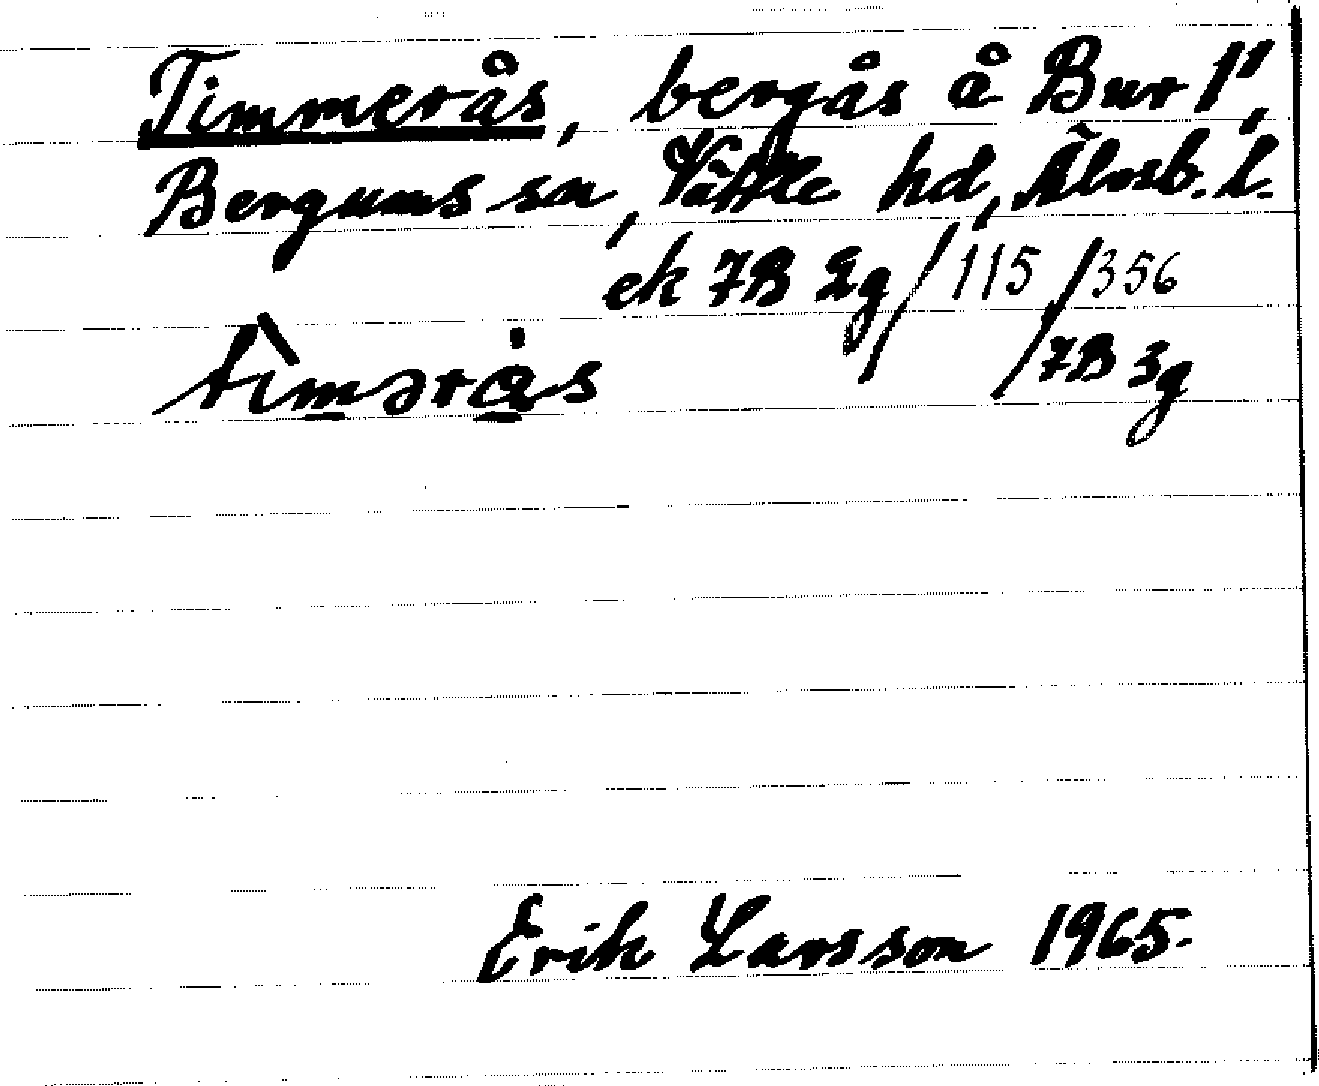 Timmerås, bergås å Bur 1",
Bergums sn, Vättle hd, Älvsb. l.
ek 7B 2g/115/356
/7B 3g
tìmərås
Erik Larsson 1965.